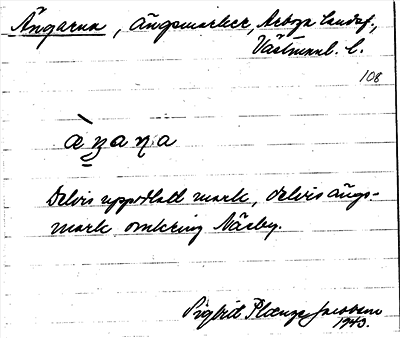 Ängarna, ängsmarker, Arboga landsf.,
Västmanl. l.
108
àȥaṇa
Delvis uppodlad mark, delvis ängs-
mark omkring Näsby.
Sigfrid
1943.